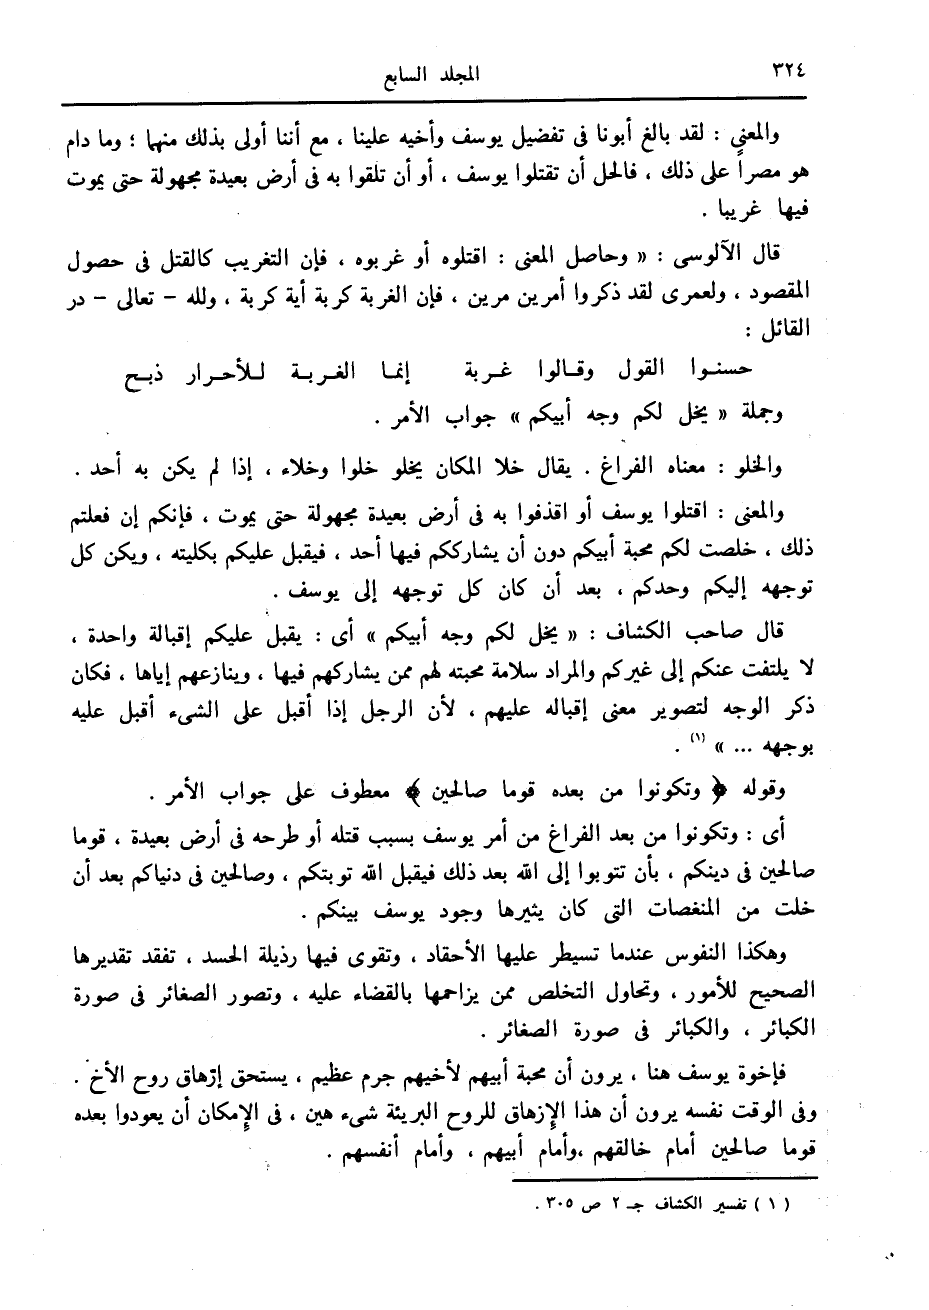 ٣٢٤
المجلد السابع
والمعنى : لقد بالغ أبونا فى تفضيل يوسف وأخيه علينا ، مع أننا أولى بذلك منهما ؛ وما دام
هو مصراً على ذلك ، فالحل أن تقتلوا يوسف ، أو أن تلقوا به فى أرض بعيدة مجهولة حتى يموت
فيها غريبا .
قال الآلوسى : « وحاصل المعنى : اقتلوه أو غربوه ، فإن التغريب كالقتل فى حصول
المقصود ، ولعمرى لقد ذكروا أمرين مرين ، فإن الغربة كربة أية كربة ، ولله – تعالى – در
القائل :
حسنوا القول وقالوا غربة إنما الغربة للأحرار ذبح
وجملة « يخل لكم وجه أبيكم » جواب الأمر .
والخلو : معناه الفراغ . يقال خلا المكان يخلو خلوا وخلاء ، إذا لم يكن به أحد .
والمعنى : اقتلوا يوسف أو اقذفوا به فى أرض بعيدة مجهولة حتى يموت ، فإنكم إن فعلتم
ذلك ، خلصت لكم محبة أبيكم دون أن يشارككم فيها أحد ، فيقبل عليكم بكليته ، ويكن كل
توجهه إليكم وحدكم ، بعد أن كان كل توجهه إلى يوسف .
قال صاحب الكشاف : « يخل لكم وجه أبيكم » أى : يقبل عليكم إقبالة واحدة ،
لا يلتفت عنكم إلى غيركم والمراد سلامة محبته لهم ممن يشاركهم فيها ، وينازعهم إياها ، فكان
ذكر الوجه لتصوير معنى إقباله عليهم ، لأن الرجل إذا أقبل على الشىء أقبل عليه
بوجهه ... » (١) .
وقوله ﴿ وتكونوا من بعده قوما صالحين ﴾ معطوف على جواب الأمر .
أى : وتكونوا من بعد الفراغ من أمر يوسف بسبب قتله أو طرحه فى أرض بعيدة ، قوما
صالحين فى دينكم ، بأن تتوبوا إلى الله بعد ذلك فيقبل الله توبتكم ، وصالحين فى دنياكم بعد أن
خلت من المنغصات التى كان يثيرها وجود يوسف بينكم .
وهكذا النفوس عندما تسيطر عليها الأحقاد ، وتقوى فيها رذيلة الحسد ، تفقد تقديرها
الصحيح للأمور ، وتحاول التخلص ممن يزاحمها بالقضاء عليه ، وتصور الصغائر فى صورة
الكبائر ، والكبائر فى صورة الصغائر .
فإخوة يوسف هنا ، يرون أن محبة أبيهم لأخيهم جرم عظيم ، يستحق إزهاق روح الأخ .
وفى الوقت نفسه يرون أن هذا الإزهاق للروح البريئة شىء هين ، فى الإمكان أن يعودوا بعده
قوما صالحين أمام خالقهم ،وأمام أبيهم ، وأمام أنفسهم .
( ١ ) تفسير الكشاف جـ ٢ ص ٣٠٥ .